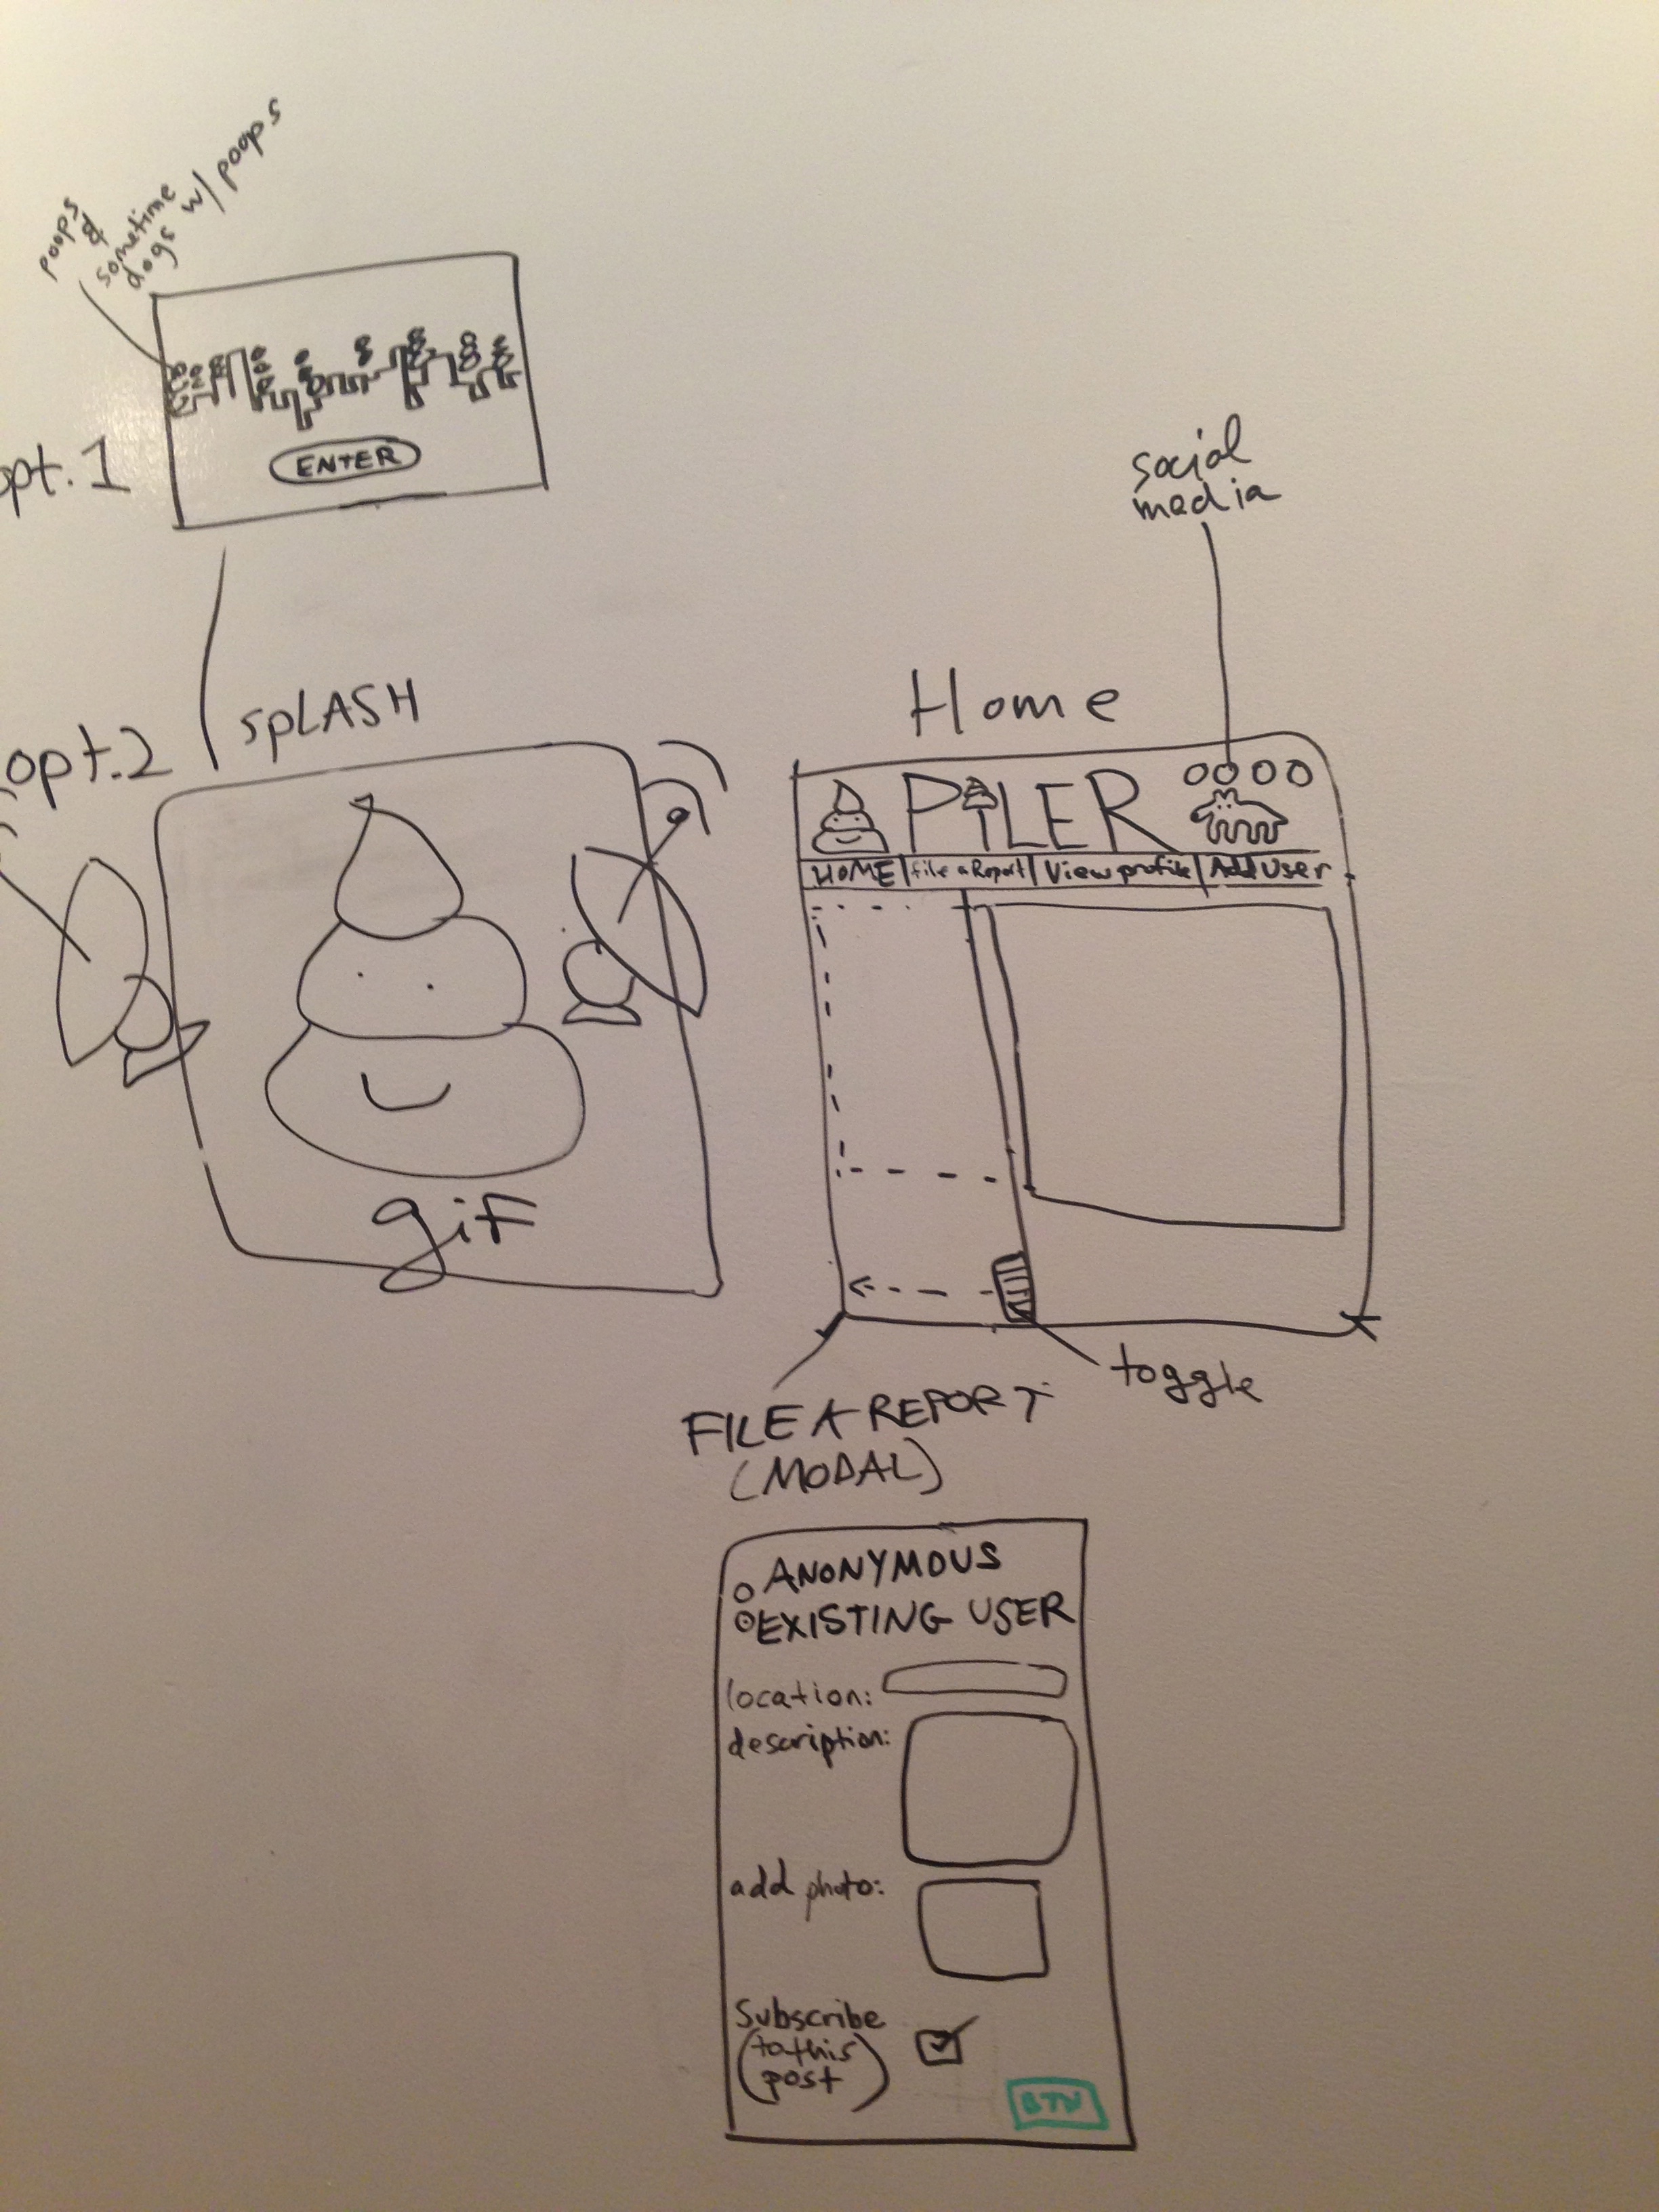 poops
&
sometime
dogs w/ poops
opt.1
ENTER
social
media
opt.2
SPLASH
Home
PILER
HOME | File a Report | View profile | Add User
gif
toggle
FILE A REPORT
(MODAL)
ANONYMOUS
EXISTING USER
location:
description:
add photo:
Subscribe
(to this
post)
BTN